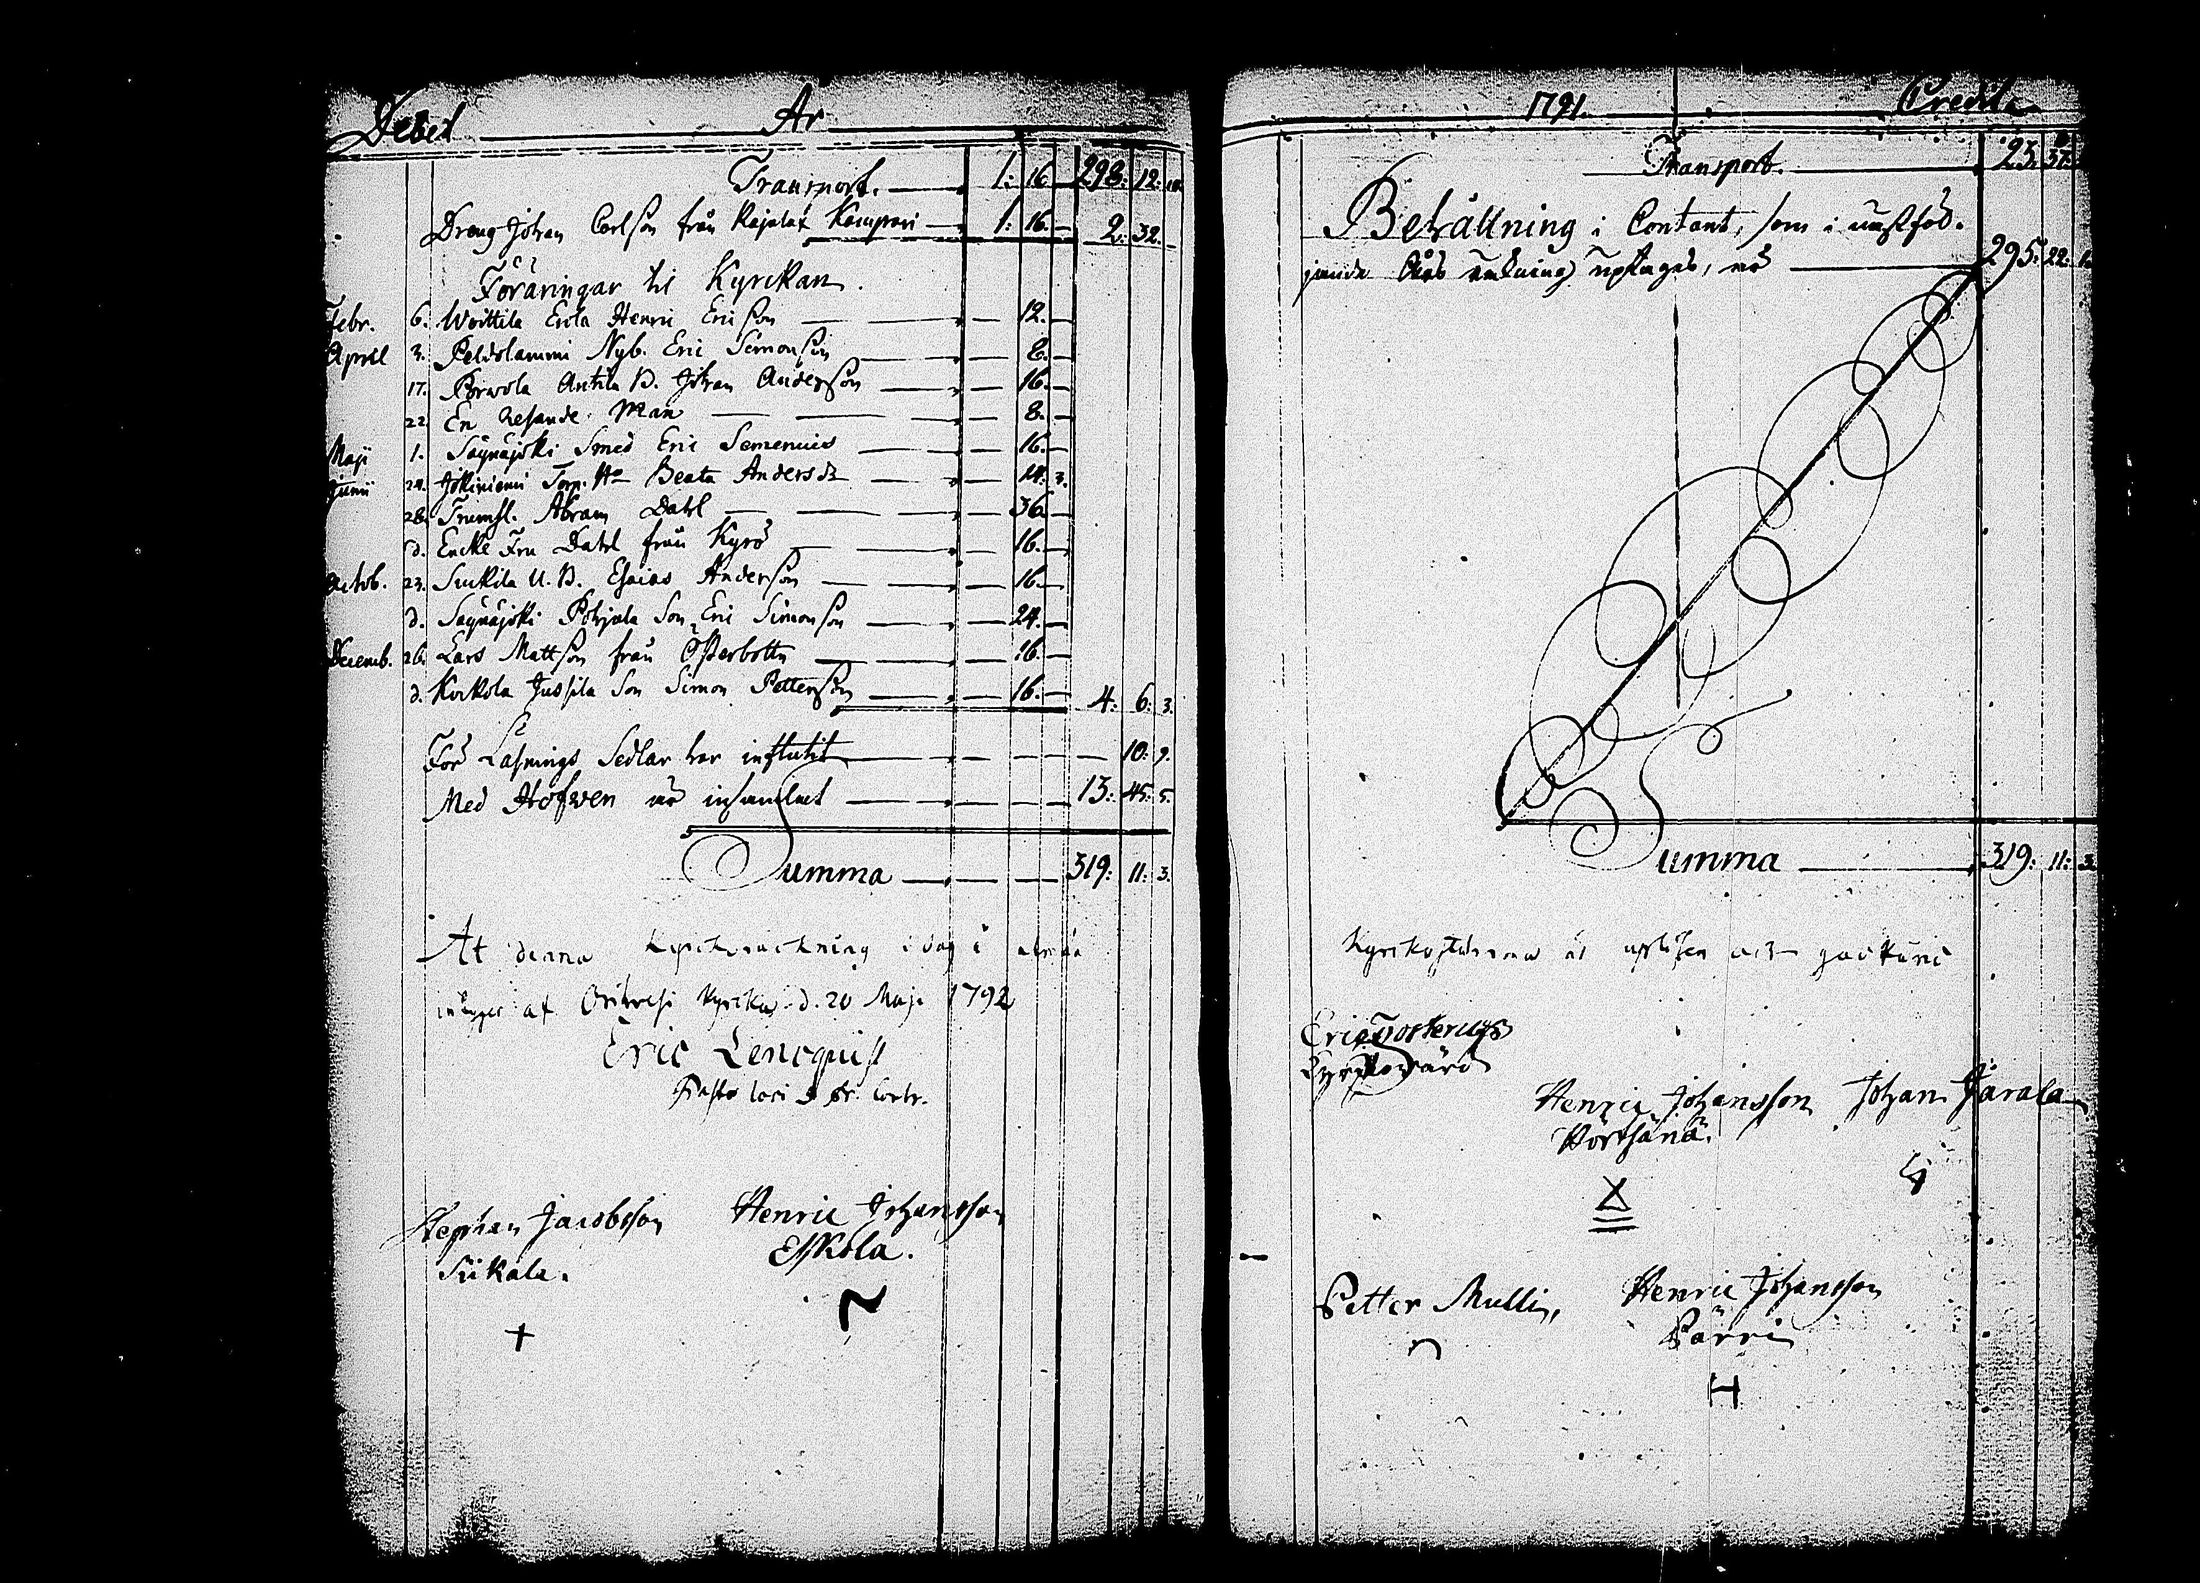 Debet Ar
Transport. 1: 16 298: 12: 10.
Dreng Johan Carlson från Rajalax Kampari 1: 16. 2: 32.
Föräringar til Kyrckan.
Febr. 6. Woittila Erila Henric Ericson 12.
Aprill 3. Peldolammi Nyb. Eric Simonson 8.
17. Porwola Antila B. Johan Anderson 16.
22. En Resande Man 8.
Maji 1. Säynäjoki Smed Eric Semenius 16.
Junii 24. Jokiniemi Torp. H. Beata Andersdr 14. 3.
28. Trumsl. Abram Dahl 36.
d. Encke Fru Dahl från Kyrö 16.
Octob. 23. Suckila U. B. Esaias Anderson 16.
d. Säynäjoki Pohjala Son Eric Simonson 24.
Decemb. 26. Lars Mattson från Österbottn 16.
d. Korkola Jussila Son Simon Petterson 16. 4: 6: 3.
För Läsnings Sedlar har influtit 10: 9.
Med Hofwen är insamlat 13: 45: 5.
Summa 319: 11: 3.
At denna Kyrckoräckning i dag i
af Orihvesi Kyrcka d. 20 Maji 1792
Eric Lencquist
Past. loci
Stephan Jacobsson Henric Johansson
Siikala. Eskola.
1791. Credit
Transport. 23: 37:
Behållning i Contant, som i näståföl-
jande Års räkning uptages, är 295: 22:
Summa 319: 11: 3.
Kyrckostämma är upläsen och godkänd
Eric Forterus
Kyrckowärd
Henric Johansson Johan Järala
Pörsänä.
Petter Mullin, Henric Johansson
Pärri
H